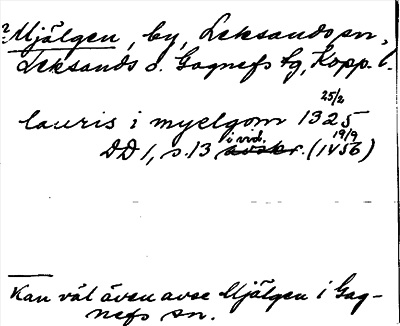 ? Mjälgen, by, Leksands sn,
Leksands o. Gagnefs tg, Kopp. l.
lauris i myelgom 1325 25/2
DD 1, s. 13 i vid. avskr. (1456 19/9)
Kan väl även avse Mjälgen i Gag-
nefs sn.